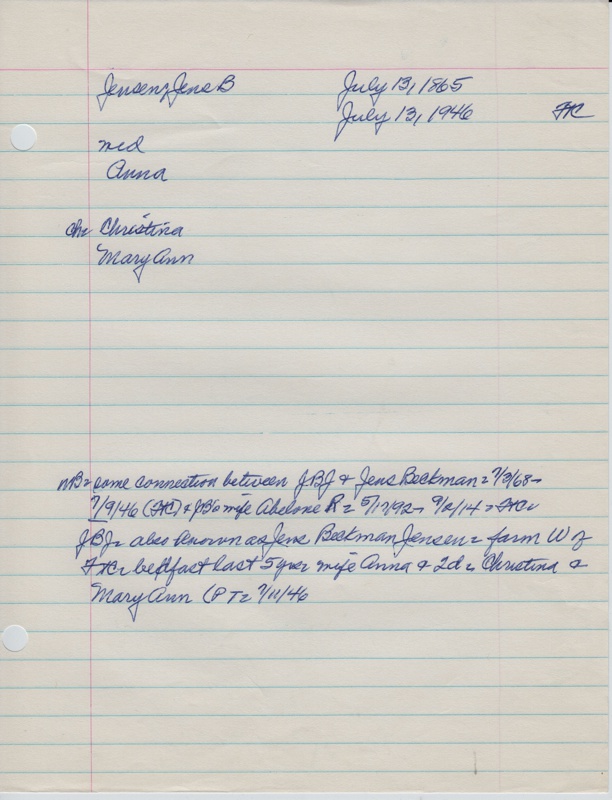 Jensen, Jens B July 13, 1865
July 13, 1946 FKC
med
Anna
ch= Christina
Mary Ann
NB= some connection between JBJ & Jens Beckman = 7/3/68-
7/9/46 (FKC) & JB's wife Abelone R = 5/17/92-
JBJ= also known as Jens Beckman Jensen = farm W of
FKC= bedfast last 5 yrs= wife Anna & 2d = Christina &
Mary Ann (PT= 7/11/46